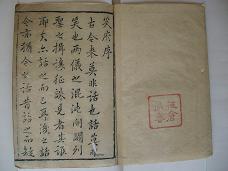 笑府序
古今來莫非話也話莫非
笑也兩儀之混沌開闢列
聖之揖讓征誅見者其誰
耶夫亦話之而已耳後之話
今亦猶今之話昔話之而疑